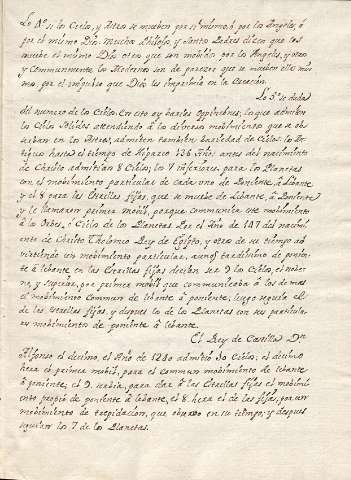 Lo 4º si los Cielos, y Astros se mueben por sí mismos, ó por los Angeles, ó
por el mismo Dios. Muchos Philosofos y Santos Padres dicen que los
muebe el mismo Dios otros que son mobidos por los Angeles, y otros
y Communmente los Modernos son de parecer que se mueben ellos mis
mos, por el impulso que Dios les imprimio en la Creacion.
Lo 5º se duda
del numero de los Cielos. En esto ay barias Oppiniones, los que admiten
los Cielos Solidos attendiendo á los diversos mobimientos que se ob
serban en los Astros, admiten tambien bariedad de Cielos: los An
tiguos hasta el tiempo de Hiparco 136 años antes del nacimiento
de Christo admitian 8 Cielos, los 7 inferiores para los Planetas
con el mobimiento particular de cada uno de Poniente á Lebante
y el 8 para las Estrellas fijas, que se muebe de Lebante, á Poniente
y le llamaron primer mobil, porque communica este mobimiento
á los Orbes, ó Cielos de los Planetas. Por el Año de 147 del nacimi
ento de Christo Tholomeo Rey de Egipto, y otros de su tiempo ad
virtiendo un mobimiento particular, aunque tardissimo de ponien
te á lebante en las Estrellas fijas decian ser 9 los Cielos, el nobe
no, y superior, por primer mobil que communicaba á los de mas
el mobimiento commun de lebante á poniente, luego seguia el
de las Estrellas fijas, y despues los de los Planetas con sus particula
res mobimientos de poniente á lebante.
El Rey de Castilla Dn
Alfonso el decimo, el Año de 1280 admitio 10 Cielos; el decimo
hera el primer mobil, para el commun mobimiento de lebante
á poniente, el 9 serbia, para dar á las Estrellas fijas el mobimi
ento propio de poniente á lebante, el 8 hera el de las fijas, por un
mobimiento de trepidacion, que observó en su tiempo; y despues
seguian los 7 de los Planetas.